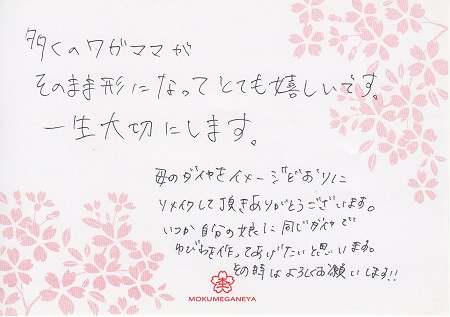 多くのワガママが
そのまま形になってとても嬉しいです。
一生大切にします。
母のダイヤをイメージどおりに
リメイクして頂きありがとうございます。
いつか自分の娘に同じダイヤで
ゆびわを作ってあげたいと思います。
その時はよろしくお願いします!!
MOKUMEGANEYA